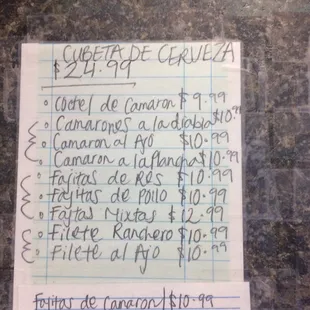 CUBETA DE CERVEZA
$24.99
Coctel de Camaron $9.99
Camarones a la diabla $10.99
Camaron al Ajo $10.99
Camaron a la Plancha $10.99
Fajitas de Res $10.99
Fajitas de Pollo $10.99
Fajitas Mixtas $12.99
Filete Ranchero $10.99
Filete al Ajo $10.99
Fajitas de Camaron $10.99